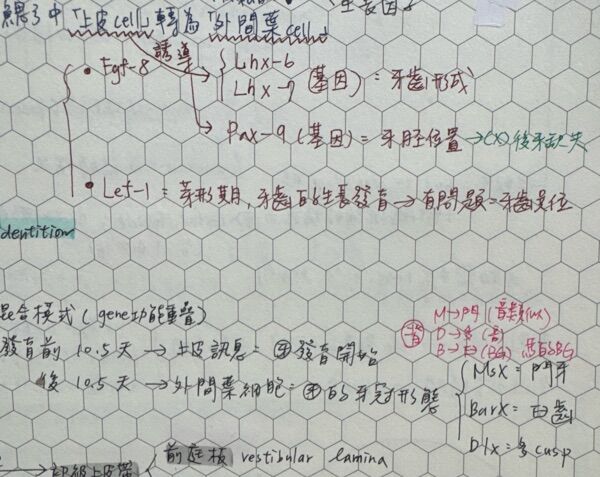 中「上皮cell」轉為「外間葉cell」
誘導
• Fgf-8 Lhx-6
Lhx-7 (基因) = 牙齒形成
Pax-9 (基因) = 牙胚位置 → (X) 後牙缺失
• Lef-1 = 芽形期, 牙齒的生長發育 → 有問題 = 牙齒異位
dentition
混合模式 (gene功能重疊)
發育前 10.5 天 → 上皮訊息 = 牙發育開始
後 10.5 天 → 外間葉細胞 = 牙的牙冠形態
M → 門 (音類
D → 多 (音)
B → 臼 (BG)
Msx = 門牙
Barx = 臼齒
Dlx = 多cusp
→ 初級上皮帶 前庭板 vestibular lamina